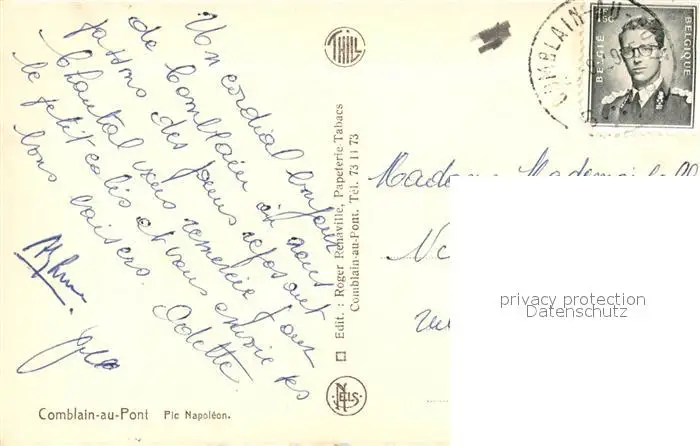 Un cordial bonjour
de Comblain où nous
passons des jours reposant
Chantal vous remercie pour
le petit colis et vous envoie ses
bons baisers. Odette
THILL
Edit. : Roger Renaville, Papeterie-Tabacs
Comblain-au-Pont. Tél. 73 11 73
NELS
Comblain-au-Pont Pic Napoléon.
COMBLAIN
BELGIË BELGIQUE
Madame Mademoiselle
privacy protection
Datenschutz